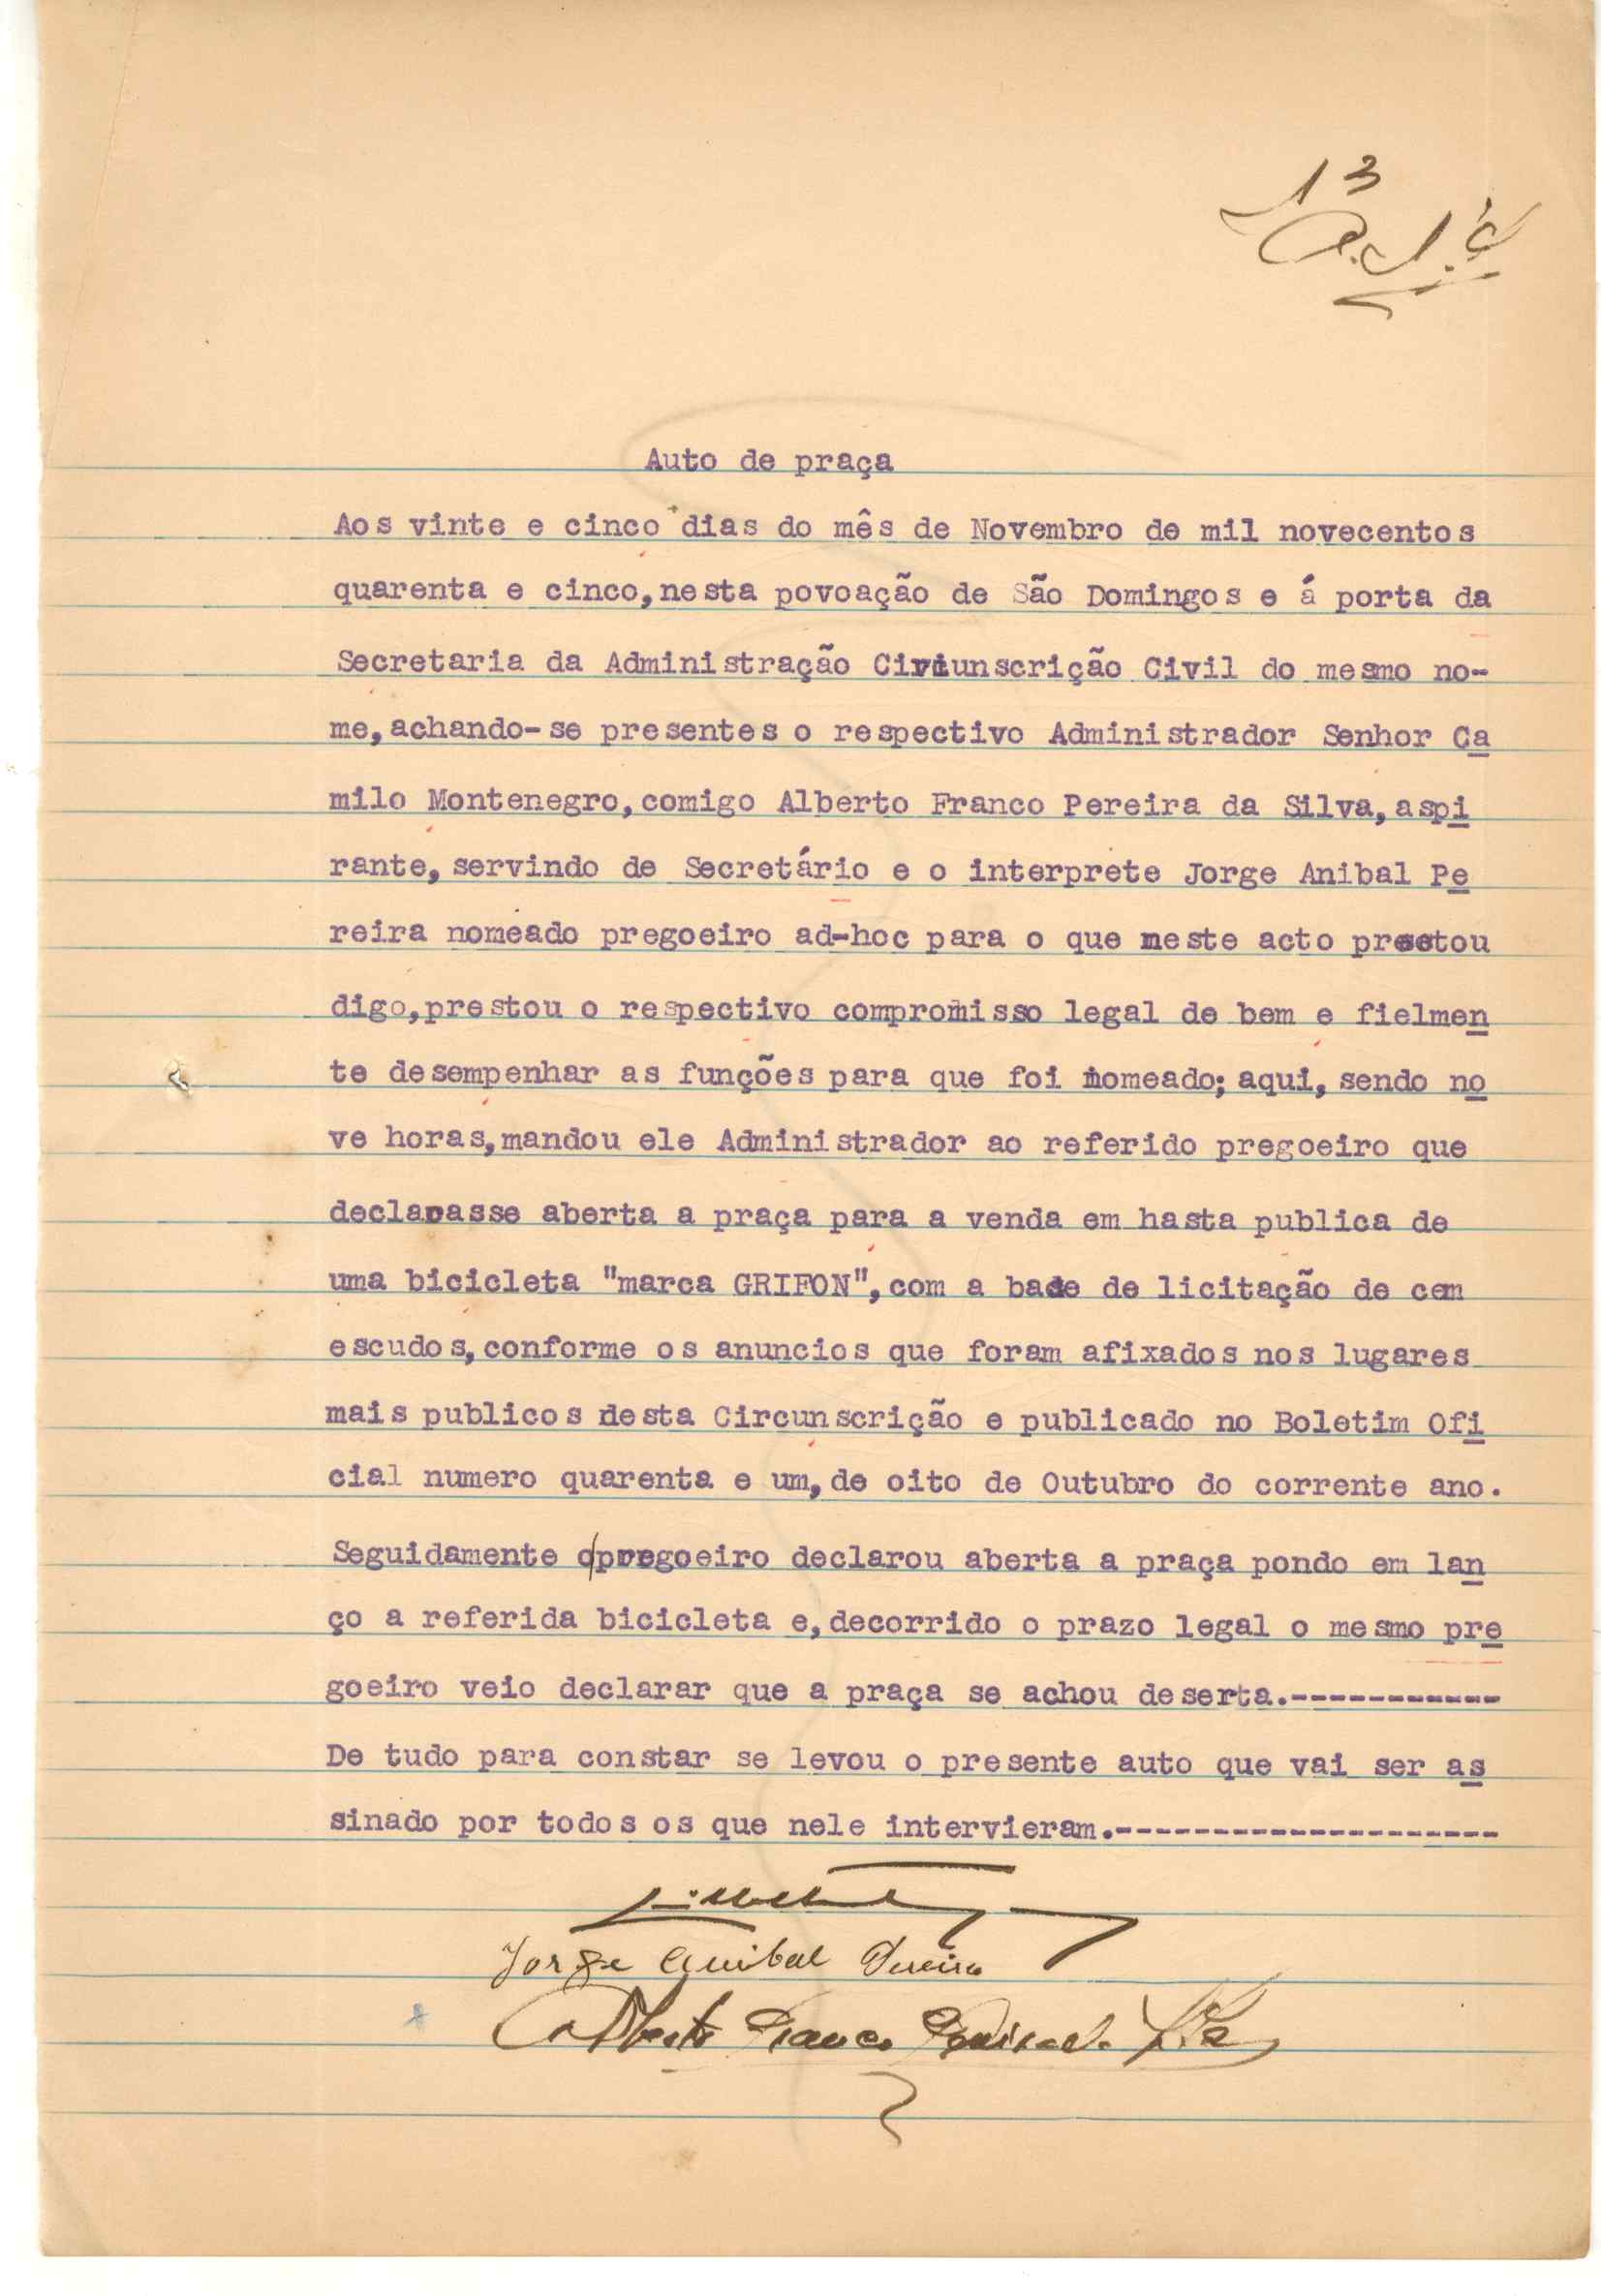 13
Auto de praça
Aos vinte e cinco dias do mês de Novembro de mil novecentos
quarenta e cinco, nesta povoação de São Domingos e á porta da
Secretaria da Administração Circunscrição Civil do mesmo no-
me, achando-se presentes o respectivo Administrador Senhor Ca
milo Montenegro, comigo Alberto Franco Pereira da Silva, aspi
rante, servindo de Secretário e o interprete Jorge Anibal Pe
reira nomeado pregoeiro ad-hoc para o que neste acto prestou
digo, prestou o respectivo compromisso legal de bem e fielmen
te desempenhar as funções para que foi nomeado; aqui, sendo no
ve horas, mandou ele Administrador ao referido pregoeiro que
declarasse aberta a praça para a venda em hasta publica de
uma bicicleta "marca GRIFON", com a base de licitação de cem
escudos, conforme os anuncios que foram afixados nos lugares
mais publicos desta Circunscrição e publicado no Boletim Ofi
cial numero quarenta e um, de oito de Outubro do corrente ano.
Seguidamente o pregoeiro declarou aberta a praça pondo em lan
ço a referida bicicleta e, decorrido o prazo legal o mesmo pre
goeiro veio declarar que a praça se achou deserta.-----------
De tudo para constar se levou o presente auto que vai ser as
sinado por todos os que nele intervieram.--------------------
Jorge Anibal Pereira
Alberto Franco Pereira da Silva